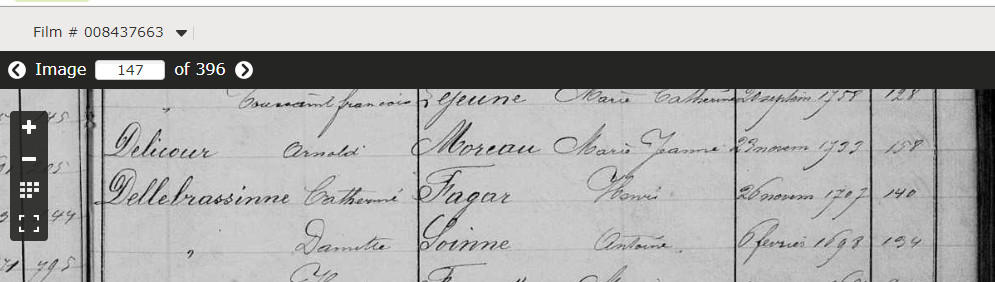 Film # 008437663
Image 147 of 396
" Toussaint francois Lejeune Marie Catherine 1758 128
Delicour Arnold Moreau Marie Jeanne 23 novem 1733 158
Dellebrassinne Catherine Fagar Henri 26 novem 1707 140
" Damette Loinne Antoine 6 fevrier 1698 134